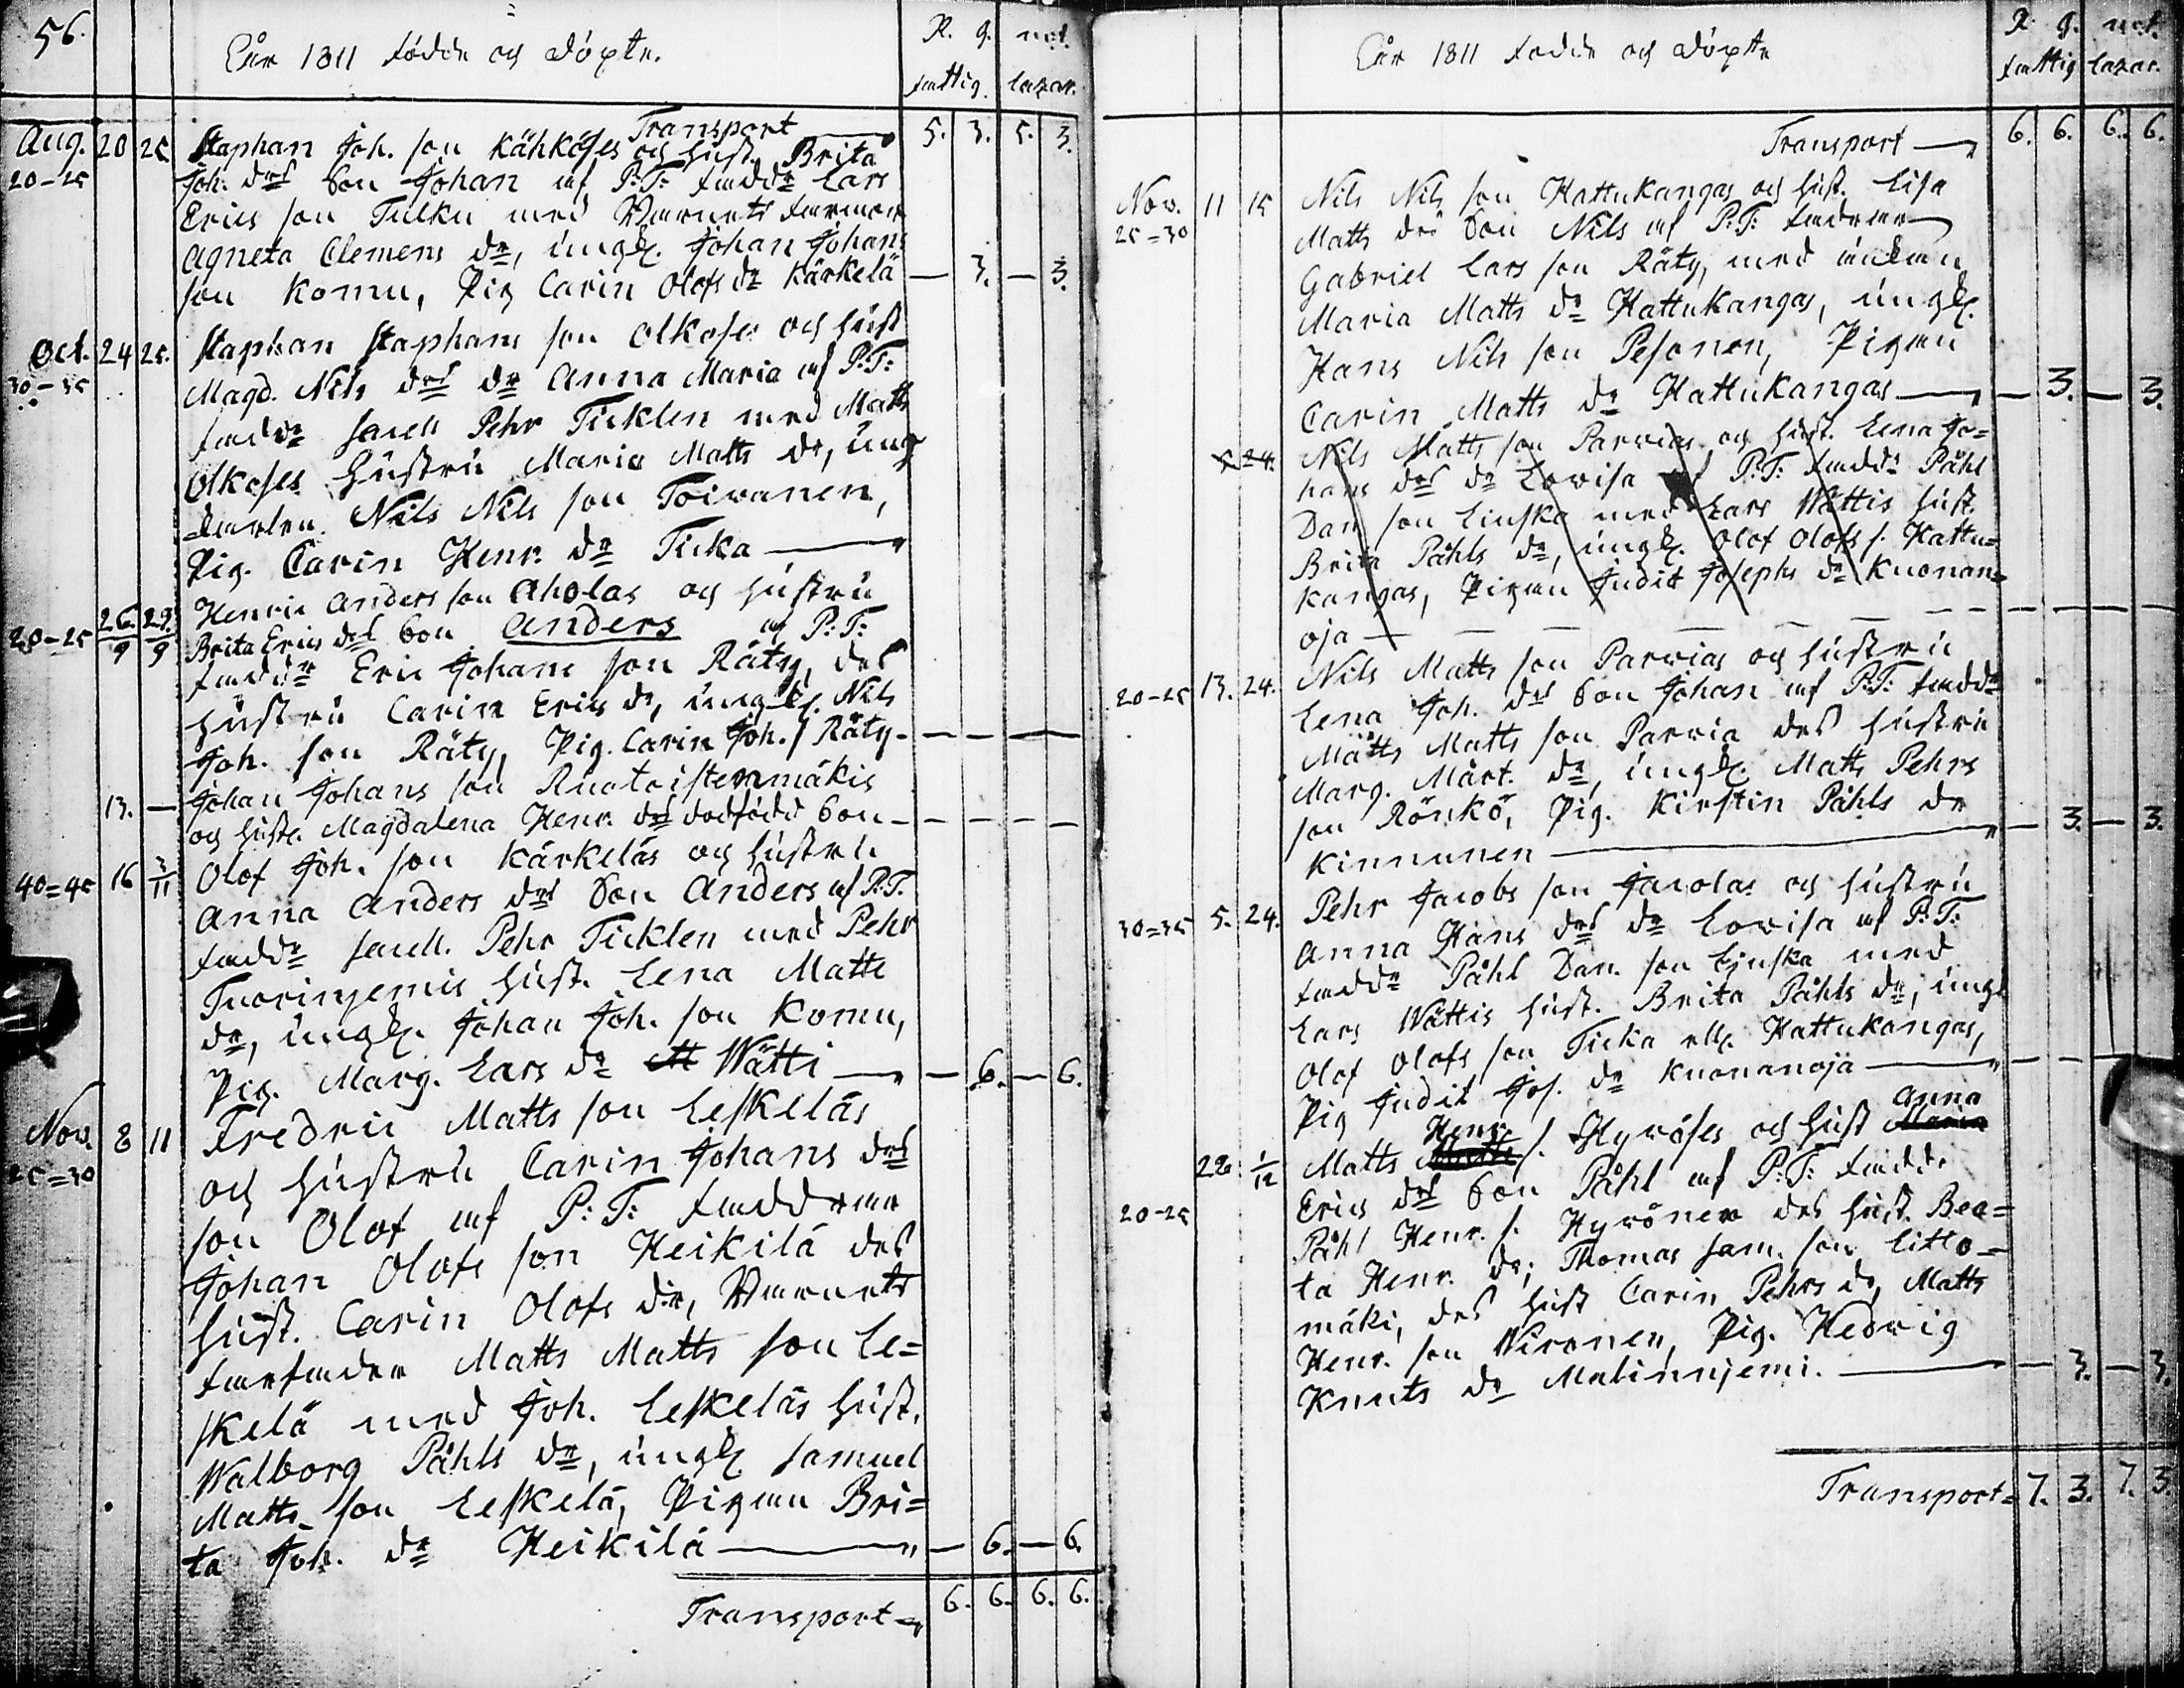 56.
Åår 1811 födde och döpte.
R. g. not.
fattig. lazar.
Transport 5. 3. 5. 3.
Aug. 20 25 Staphan Joh. son Kähköses och hust. Brita
20-25 Joh. drs Son Johan af P:T: faddr Lars
Erics son Tulku med Barnets farmor
Agneta Clemens dr, ungk. Johan Johans
son Komu, Pig Carin Olofs dr Kärkelä — 3. — 3.
Oct. 24 25. Staphan Staphans son Olkoses och hust
30-35 Magd. Nils drs dr Anna Maria af P:T:
faddr Pehr Ticklen med Matts
Olkoses hustru Maria Matts dr, ung
Nils Nils son Toivanen,
Pig. Carin Henr. dr Ticka —
Henric Anders son Aholas och hustru
20-25 26/9 29/9 Brita Erics drs Son Anders af P:T:
faddr Eric Johans son Räty, des
hustru Carin Erics dr, ungk. Nils
Joh. son Räty, Pig. Carin Joh. / Räty — — — —
13. — Johan Johans son Ruotoistenmäkis
och hustr. Magdalena Henr. drs dödfödd Son — — — —
40=45 16 3/11 Olof Joh. son Kärkeläs och hustru
Anna Anders drs Son Anders af P.T.
faddr Pehr Ticklen med Pehr
Tuorinjemis hust. Lena Matts
dr, ungk. Johan Joh. son Komu,
Pig. Marg. Lars dr Wätti — — 6. — 6.
Nov. 8 11 Fredric Matts son Leskeläs
25=30 och hustru Carin Johans drs
son Olof af P:T: faddrar
Johan Olofs son Heikilä des
hust. Carin Olofs dr, Barnets
farfader Matts Matts son Le=
skelä med Joh. Leskeläs hust.
Walborg Påhls dr, ungk Samuel
Matts son Leskelä, Pigan Bri=
ta Joh. dr Heikilä — — 6. — 6.
Transport 6. 6. 6. 6.
Åår 1811 födde och döpte
R. g. not.
fattig lazar.
Transport — 6. 6. 6. 6.
Nov. 11 15 Nils Nils son Hattukangas och hust. Lisa
25=30 Matts drs Son Nils af P:T: faddrar
Gabriel Lars son Räty, med enkan
Maria Matts dr Hattukangas, ungk.
Hans Nils son Pesonen, Pigan
Carin Matts dr Hattukangas — — 3. — 3.
5 24. Nils Matts son Parvias och hust. Lena Jo=
hans drs dr Lovisa af P:T: faddr Påhl
Dan son Linska med Lars Wättis hust.
Brita Påhls dr, ungk. Olof Olofs s. Hattu=
kangas, Pigan Judit Josephs dr Kuonan=
oja — — — — —
20-25 13. 24. Nils Matts son Parvias och hustru
Lena Joh. drs Son Johan af P:T: faddr
Matts Matts son Parvia des hustru
Marg. Mårt. dr, ungk. Matts Pehrs
son Rönkö, Pig. Kirstin Påhls dr
Kinnunen — — 3. — 3.
30=35 5. 24. Pehr Jacobs son Jacolas och hustru
Anna Hans drs dr Lovisa af P:T:
faddr Påhl Dan. son Linska med
Lars Wättis hust. Brita Påhls dr, ungk
Olof Olofs son Ticka ell. Hattukangas,
Pig Judit Jos. dr Kuonanoja — — — — —
Henr. Anna
22. 1/12 Matts Matts s. Hyvöses och hust Maria
20-25 Erics drs Son Påhl af P:T: faddr
Påhl Henr. s. Hyvönen des hust. Bea=
ta Henr. dr; Thomas Sam. son Litto=
mäki, des hust Carin Pehrs dr, Matts
Henr. son Nironen, Pig. Hedvig
Knuts dr Malinnjemi. — — 3. — 3.
Transport 7. 3. 7. 3.